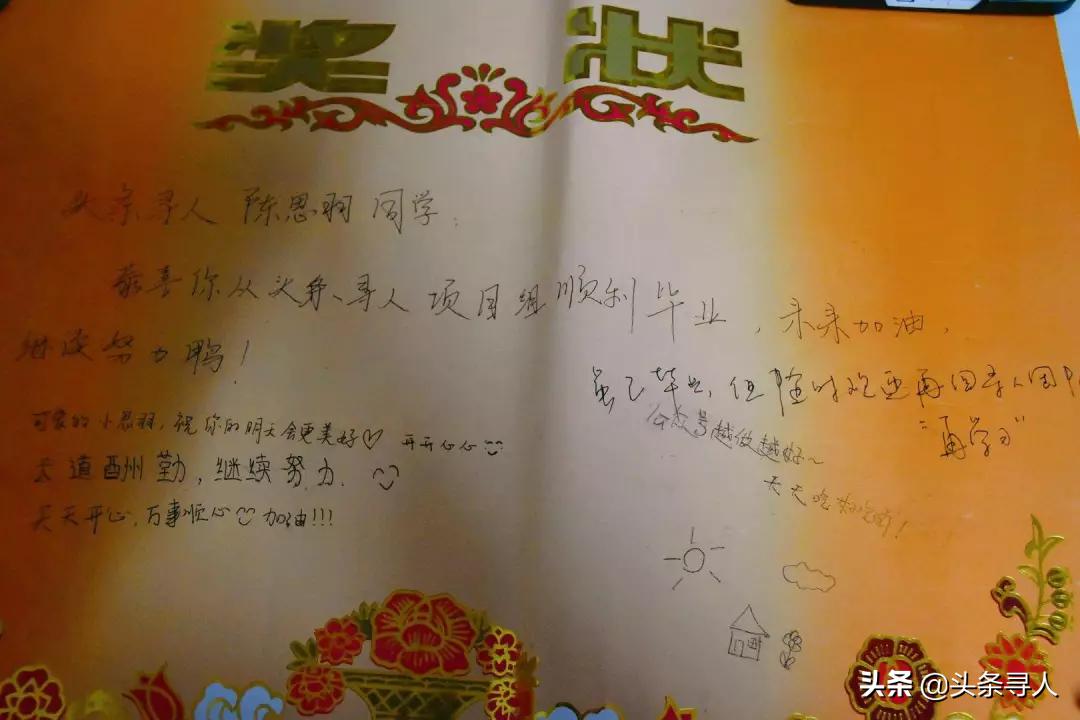 奖状
头条寻人 陈思羽 同学：
恭喜你从头条寻人项目组顺利毕业，未来加油，
继续努力鸭！
虽已毕业，但随时欢迎再回寻人团队
“再学习”
可爱的小思羽，祝你的明天会更美好♡ 开开心心
天道酬勤，继续努力.
天天开心，万事顺心 加油!!!
公众号越做越好~
天天吃好吃的！
头条 @头条寻人